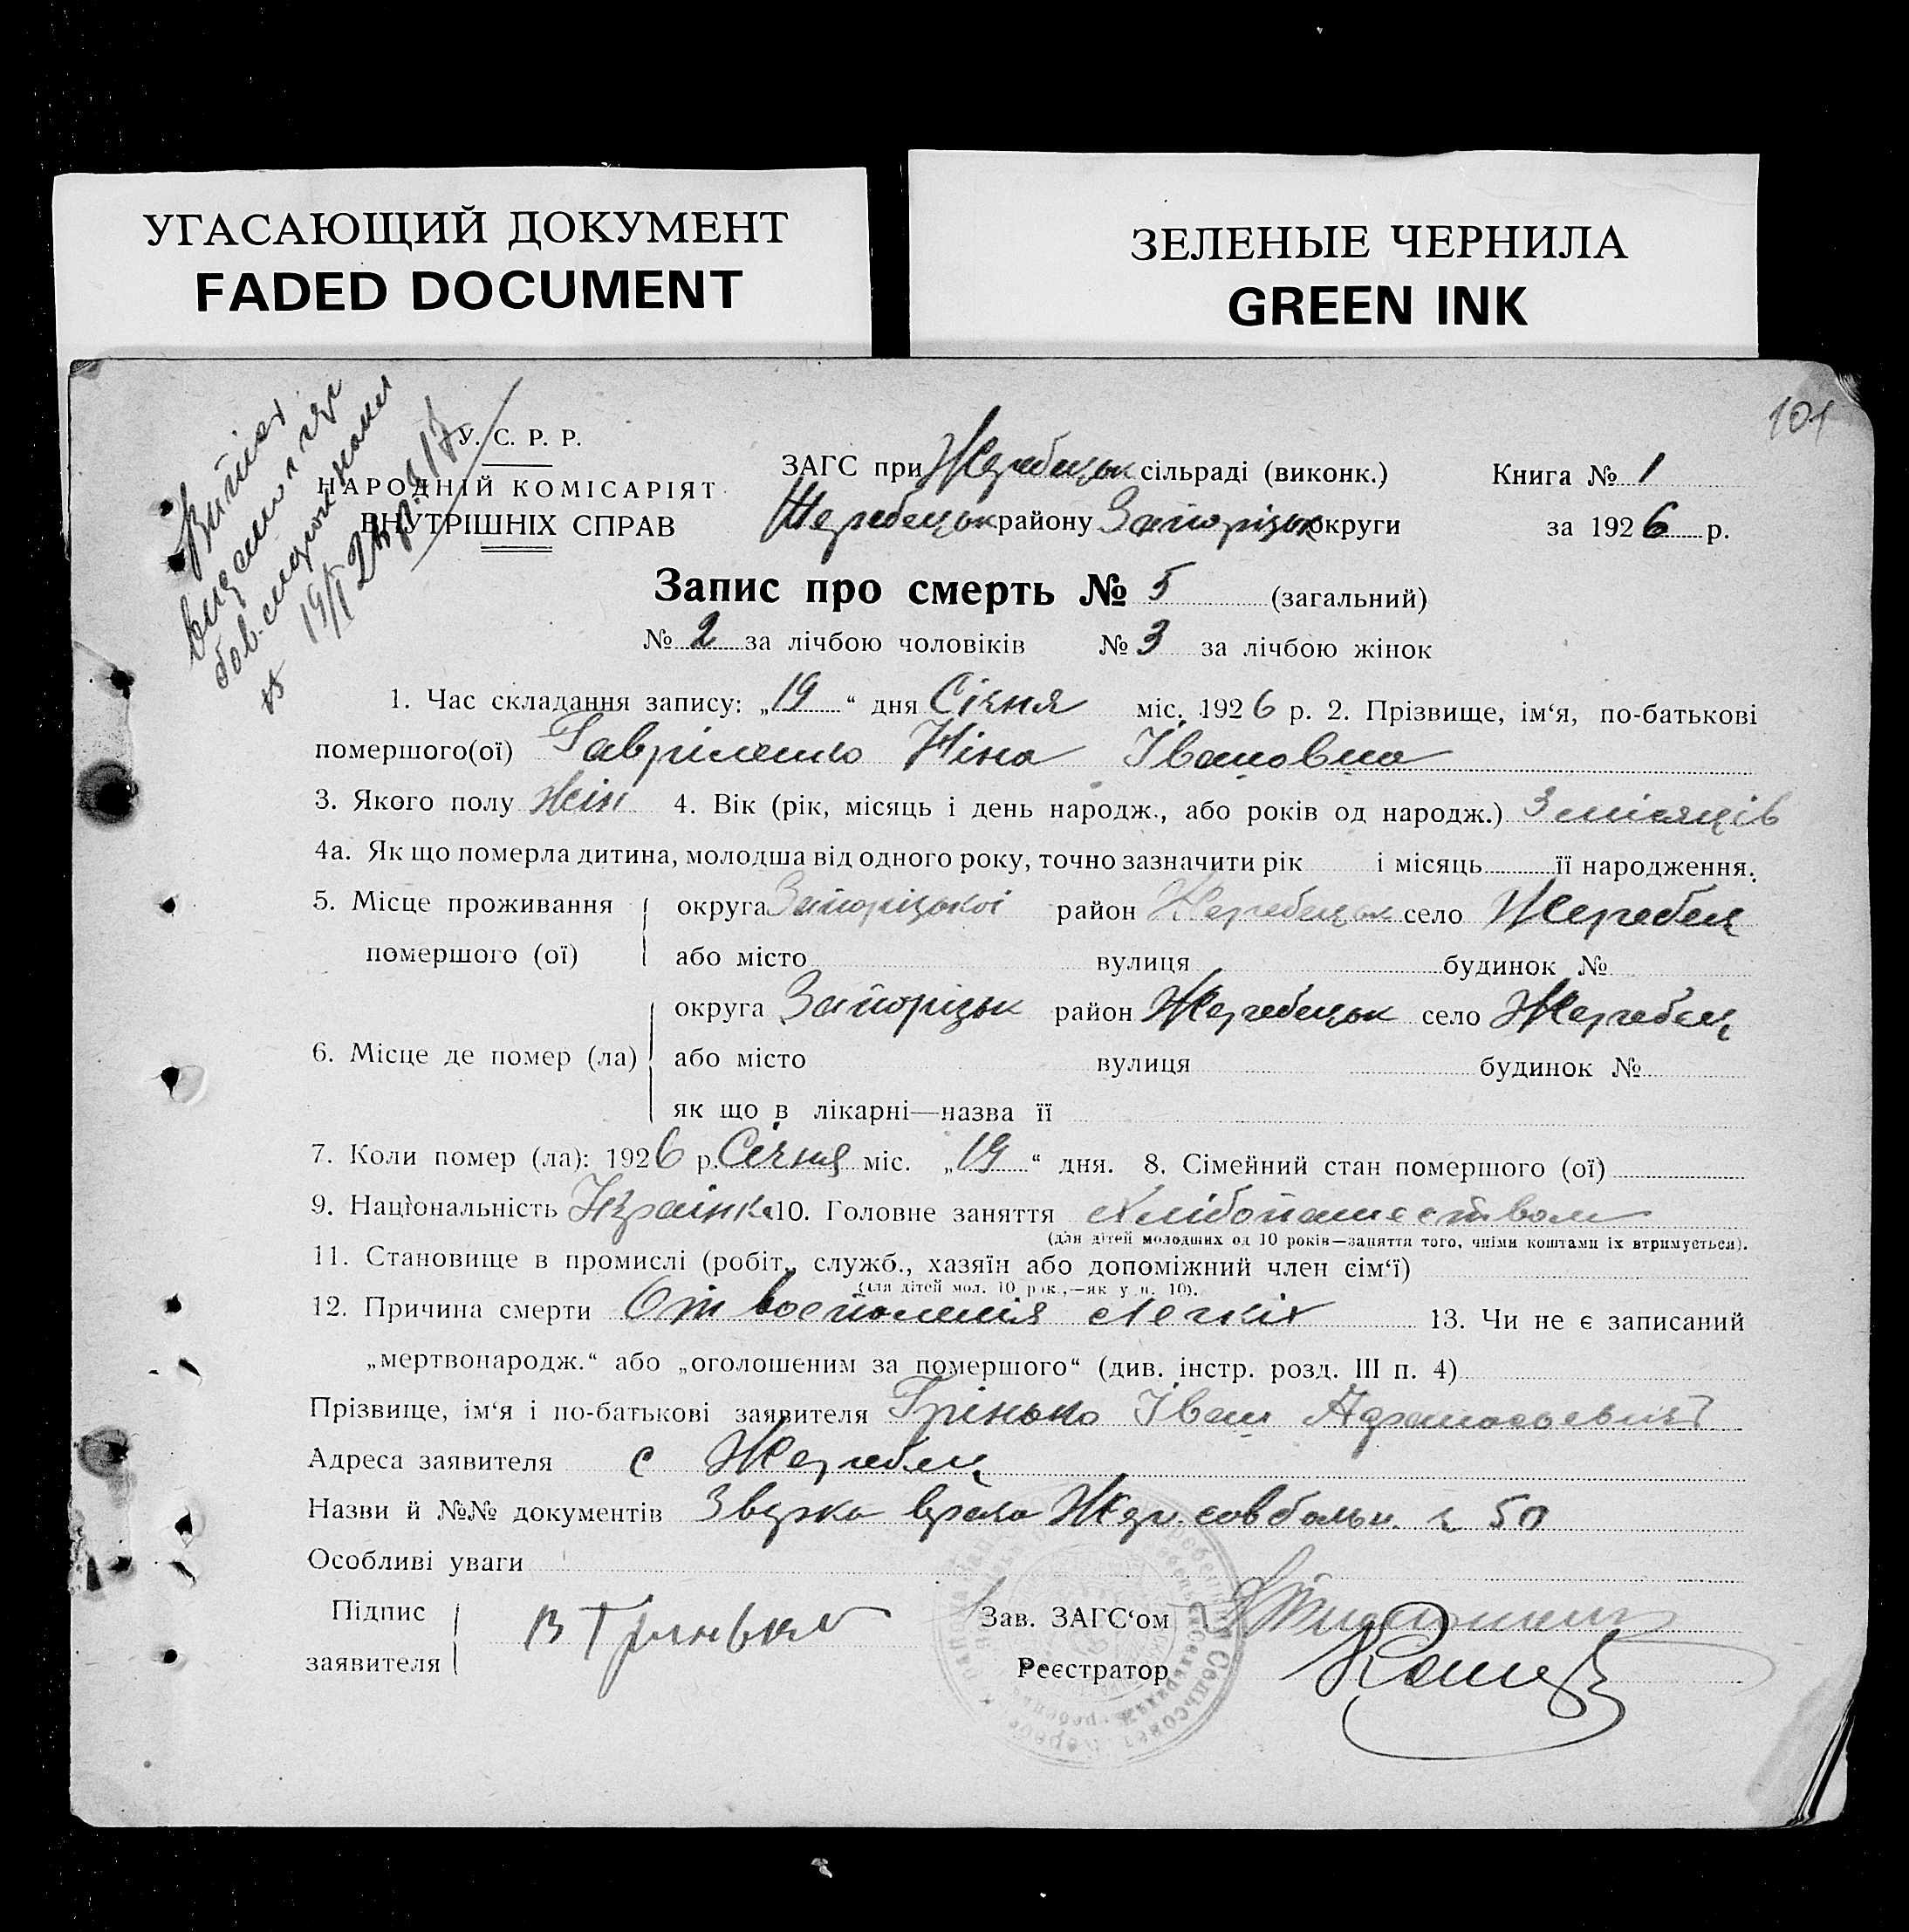 УГАСАЮЩИЙ ДОКУМЕНТ
FADED DOCUMENT
ЗЕЛЕНЫЕ ЧЕРНИЛА
GREEN INK
101
У. С. Р. Р.
НАРОДНІЙ КОМІСАРІЯТ
ВНУТРІШНІХ СПРАВ
ЗАГС при Жеребецьк сільраді (виконк.)
Жеребецьк району Запорізьк округи
Книга № 1
за 1926 р.
Запис про смерть № 5 (загальний)
№ 2 за лічбою чоловіків № 3 за лічбою жінок
1. Час складання запису: „19“ дня Січня міс. 1926 р. 2. Прізвище, ім‘я, по-батькові
помершого(ої) Гавріленко Ніна Івановна
3. Якого полу жін 4. Вік (рік, місяць і день народж., або років од народж.) 3 місяців
4а. Як що померла дитина, молодша від одного року, точно зазначити рік і місяць її народження.
5. Місце проживання округа Запорізької район Жеребецьк село Жеребец
помершого (ої) або місто вулиця будинок №
округа Запорізьк район Жеребецьк село Жеребец
6. Місце де помер (ла) або місто вулиця будинок №
як що в лікарні—назва її
7. Коли помер (ла): 1926 р. Січня міс. „19“ дня. 8. Сімейний стан помершого (ої)
9. Національність Украінка 10. Головне заняття хлібопашеством
(для дітей молодших од 10 років—заняття того, чиїми коштами їх втримується).
11. Становище в промислі (робіт., служб., хазяїн або допоміжний член сім‘ї)
(для дітей мол. 10 рок.,—як у п. 10).
12. Причина смерти От восполенія легкіх 13. Чи не є записаний
„мертвонародж.“ або „оголошеним за помершого“ (див. інстр. розд. III п. 4)
Прізвище, ім‘я і по-батькові заявителя Грінько Іван Афанасьевич
Адреса заявителя с Жеребец
Назви й №№ документів врача Жер. совбольн. 50
Особливі уваги
Підпис Зав. ЗАГС‘ом
заявителя Реєстратор